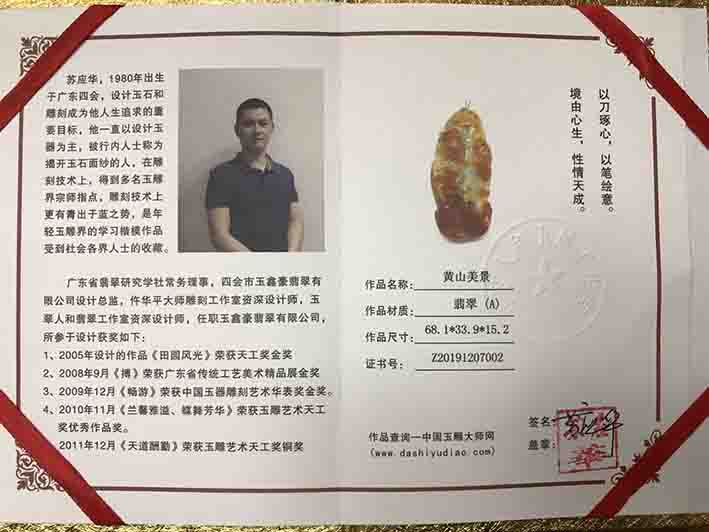 苏应华，1980年出生
于广东四会，设计玉石和
雕刻成为他人生追求的重
要目标，他一直以设计玉
器为主，被行内人士称为
揭开玉石面纱的人，在雕
刻技术上，得到多名玉雕
界宗师指点，雕刻技术上
更有青出于蓝之势，是年
轻玉雕界的学习楷模作品
受到社会各界人士的收藏。
广东省翡翠研究学社常务理事，四会市玉鑫豪翡翠有
限公司设计总监，仵华平大师雕刻工作室资深设计师，玉
翠人和翡翠工作室资深设计师，任职玉鑫豪翡翠有限公司，
所参于设计获奖如下：
1、2005年设计的作品《田园风光》荣获天工奖金奖
2、2008年9月《搏》荣获广东省传统工艺美术精品展金奖
3、2009年12月《畅游》荣获中国玉器雕刻艺术华表奖金奖。
4、2010年11月《兰馨雅溢、蝶舞芳华》荣获玉雕艺术天工
奖优秀作品奖。
2011年12月《天道酬勤》荣获玉雕艺术天工奖铜奖
以刀琢心，以笔绘意。
境由心生，性情天成。
作品名称：黄山美景
作品材质：翡翠 (A)
作品尺寸：68.1*33.9*15.2
证书号：Z20191207002
作品查询—中国玉雕大师网
(www.dashiyudiao.com)
签名：
盖章：